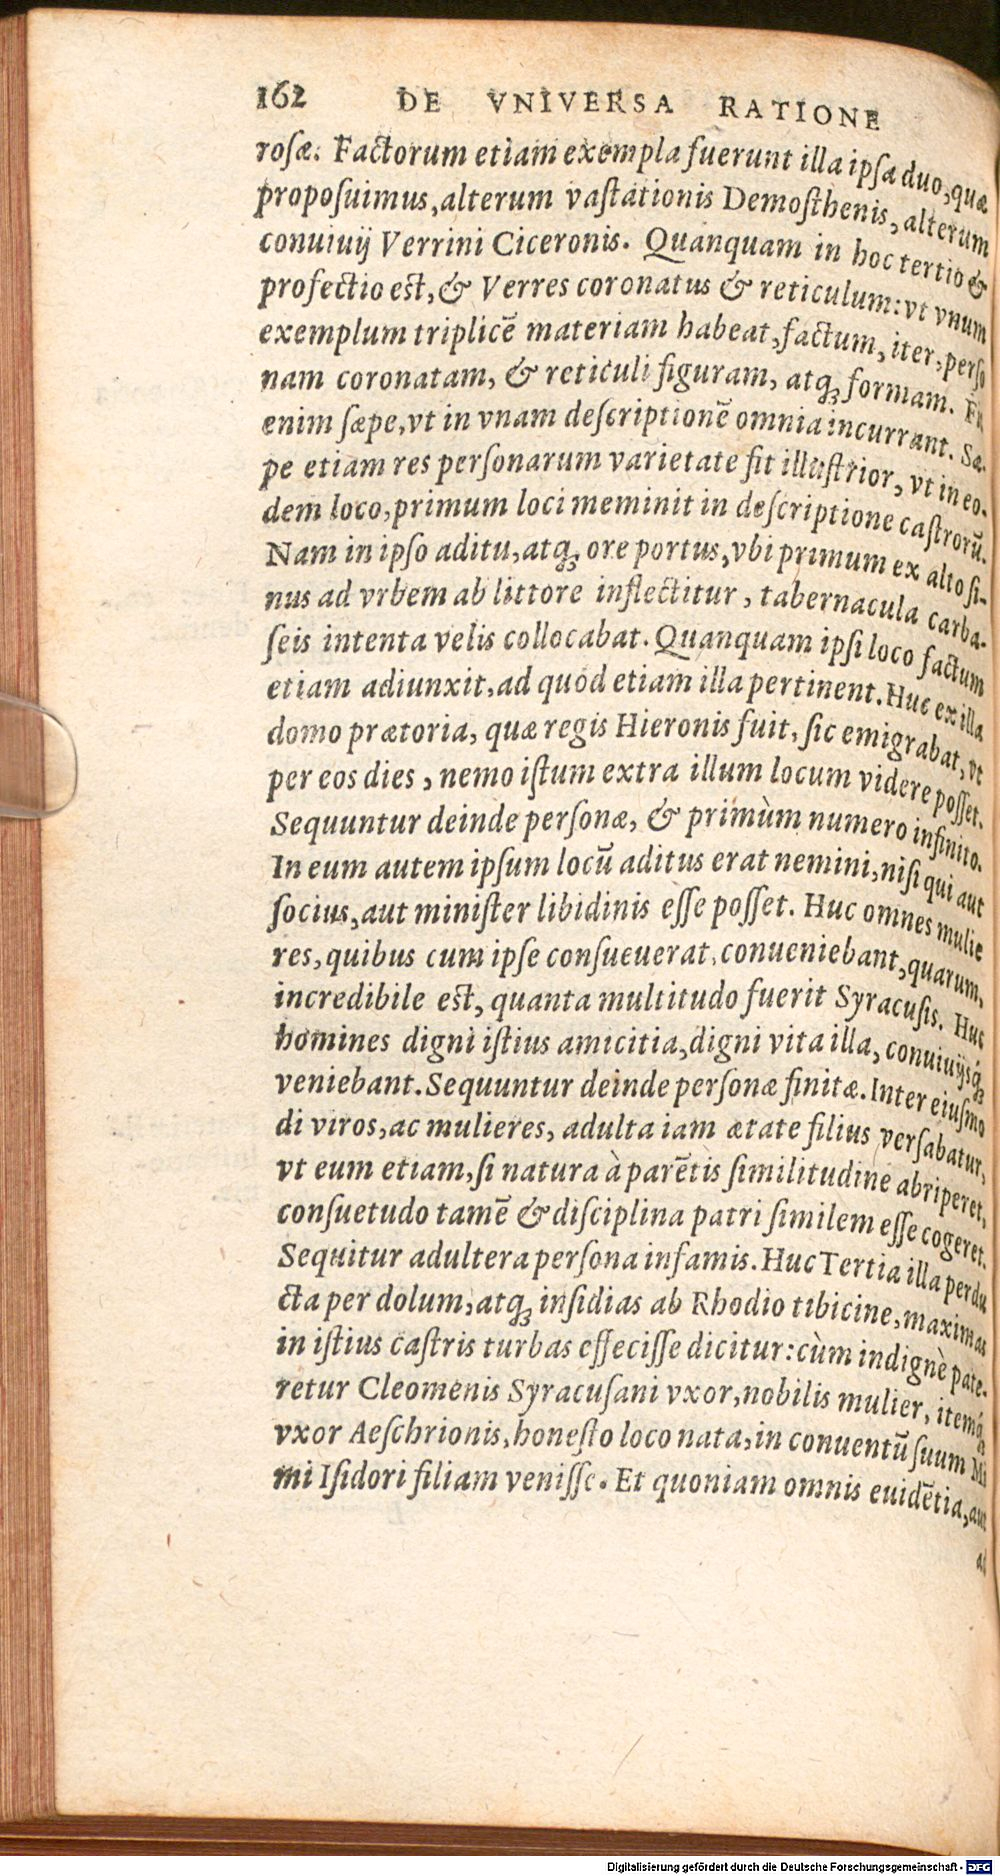 162 DE VNIVERSA RATIONE
rosæ. Factorum etiam exempla fuerunt illa ipsa duo, quæ
proposuimus, alterum vastationis Demosthenis, alterum
conuiuij Verrini Ciceronis. Quanquam in hoc tertio &
profectio est, & Verres coronatus & reticulum: vt vnum
exemplum triplicē materiam habeat, factum, iter, perso
nam coronatam, & reticuli figuram, atq; formam.
enim sæpe, vt in vnam descriptionē omnia incurrant. Sæ-
pe etiam res personarum varietate fit illustrior, vt in eo-
dem loco, primum loci meminit in descriptione castrorū.
Nam in ipso aditu, atq; ore portus, vbi primum ex alto si-
nus ad vrbem ab littore inflectitur, tabernacula carba-
seis intenta velis collocabat. Quanquam ipsi loco factum
etiam adiunxit, ad quòd etiam illa pertinent. Huc ex illa
domo prætoria, quæ regis Hieronis fuit, sic emigrabat, vt
per eos dies, nemo istum extra illum locum videre posset.
Sequuntur deinde personæ, & primùm numero infinito.
In eum autem ipsum locū aditus erat nemini, nisi qui aut
socius, aut minister libidinis esse posset. Huc omnes mulie
res, quibus cum ipse consueuerat, conueniebant, quarum,
incredibile est, quanta multitudo fuerit Syracusis. Huc
homines digni istius amicitia, digni vita illa, conuiuijsq́;
veniebant. Sequuntur deinde personæ finitæ. Inter eiusmo
di viros, ac mulieres, adulta iam ætate filius versabatur,
vt eum etiam, si natura à parētis similitudine abriperet,
consuetudo tamē & disciplina patri similem esse cogeret.
Sequitur adultera persona infamis. Huc Tertia illa perdu
cta per dolum, atq; insidias ab Rhodio tibicine, maximas
in istius castris turbas effecisse dicitur: cùm indignè pate-
retur Cleomenis Syracusani vxor, nobilis mulier, itemq́;
vxor Aeschrionis, honesto loco nata, in conuentū suum Mi
mi Isidori filiam venisse. Et quoniam omnis euidētia, aut
ad
Digitalisierung gefördert durch die Deutsche Forschungsgemeinschaft - DFG